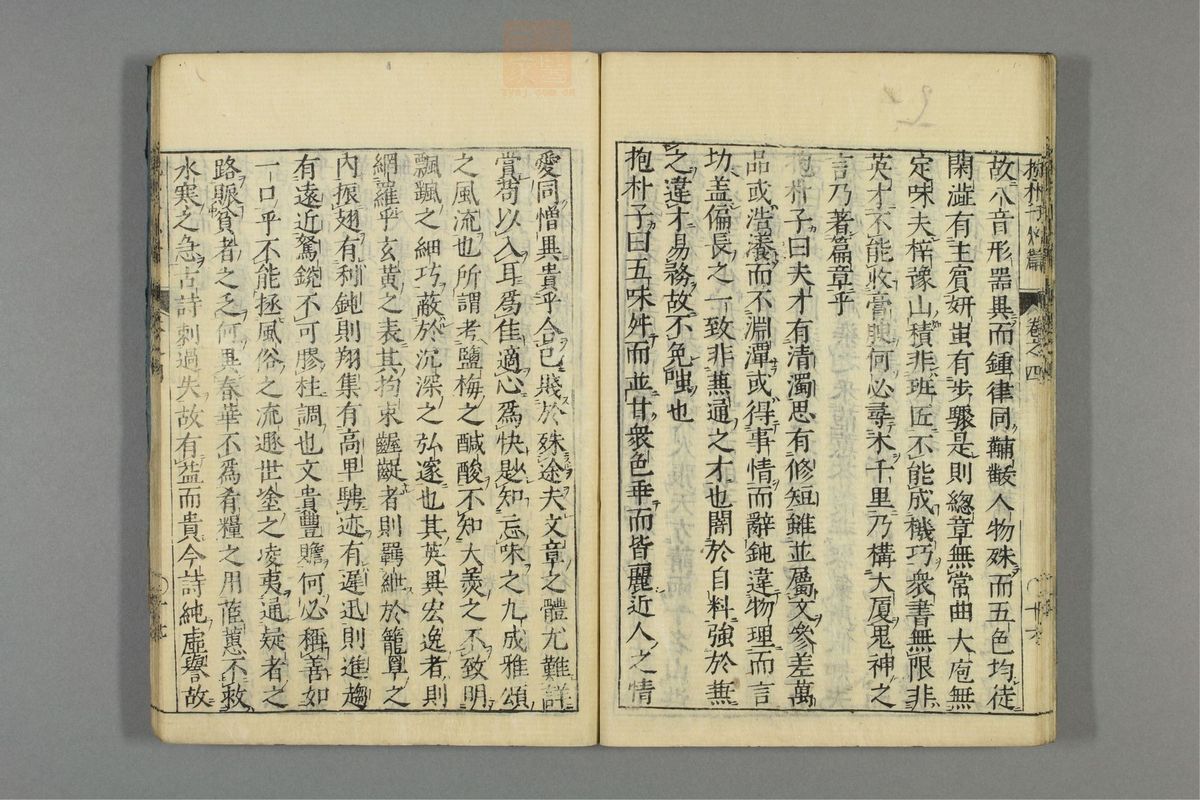 抱朴子外篇 卷之四
故八音形器異而鍾律同黼黻人物殊而五色均徒
閑澁有主賓妍蚩有步驟是則總章無常曲大庖無
定味夫梓豫山積非班匠不能成機巧衆書無限非
英才不能收膏腴何必尋木千里乃構大厦鬼神之
言乃著篇章乎
抱朴子曰夫才有清濁思有修短雖並屬文參差萬
品或浩瀁而不淵潭或得事情而辭鈍違物理而言
功盖偏長之一致非兼通之才也闇於自料強於兼
之違才易務故不免嗤也
抱朴子曰五味舛而並甘衆色乖而皆麗近人之情
愛同憎異貴乎合己賤於殊途夫文章之體尤難詳
賞苟以入耳爲佳適心爲快尠知忘味之九成雅頌
之風流也所謂考鹽梅之醎酸不知大羹之不致明
飄颻之細巧蔽於沉深之弘邃也其英異宏逸者則
網羅乎玄黃之表其拘束齷齪者則羈紲於籠罩之
內振翅有利鈍則翔集有高卑騁迹有遲迅則進趨
有遠近駑銳不可膠柱調也文貴豐贍何必稱善如
一口乎不能拯風俗之流遯世塗之凌夷通疑者之
路賑貧者之乏何異春華不爲肴糧之用茝蕙不救
水寒之急古詩刺過失故有益而貴今詩純虛譽故